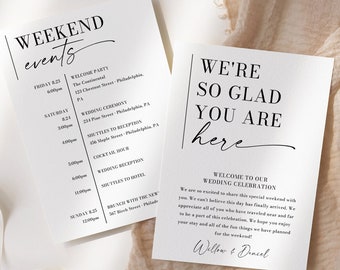 WEEKEND
events
FRIDAY 8.23
6:00pm
WELCOME PARTY
The Continental
123 Chestnut Street · Philadelphia,
PA
SATURDAY
8.24
3:00pm
WEDDING CEREMONY
234 Pine Street · Philadelphia, PA
SHUTTLES TO RECEPTION
456 Maple Street · Philadelphia,
PA
COCKTAIL HOUR
WEDDING RECEPTION
SHUTTLES TO HOTEL
SUNDAY 8.25
12:00pm
BRUNCH WITH THE NEW
567 Birch Street · Philadelphia
WE'RE
SO GLAD
YOU ARE
here
WELCOME TO OUR
WEDDING CELEBRATION
We are so excited to share this special weekend with
you. We can't believe this day has finally arrived. We
appreciate all of you who have traveled near and far
to be a part of this celebration. We hope you enjoy
your stay and all of the fun things we have planned
for the weekend!
Willow & Daniel